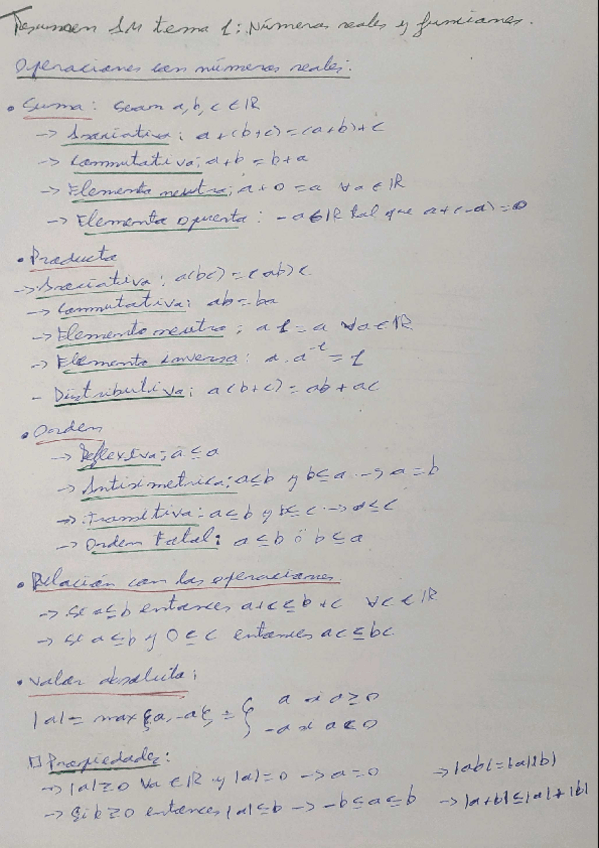 Resumen 1M tema 1: Números reales y funciones.
Operaciones con números reales:
• Suma: sean a, b, c ∈ ℝ
→ Asociativa: a+(b+c)=(a+b)+c
→ Conmutativa: a+b=b+a
→ Elemento neutro: a+0=a ∀a∈ℝ
→ Elemento opuesto: -a∈ℝ tal que a+(-a)=0
• Producto
→ Asociativa: a(bc)=(ab)c
→ Conmutativa: ab=ba
→ Elemento neutro: a·1=a ∀a∈ℝ
→ Elemento inverso: a·a⁻¹=1
- Distributiva: a(b+c)=ab+ac
• Orden
→ Reflexiva: a≤a
→ Antisimétrica: a≤b y b≤a → a=b
→ Transitiva: a≤b y b≤c → a≤c
→ Orden Total: a≤b ó b≤a
• Relación con las operaciones
→ Si a≤b entonces a+c≤b+c ∀c∈ℝ
→ Si a≤b y 0≤c entonces ac≤bc
• Valor absoluto:
|a|= max {a,-a} = { a si a≥0
-a si a<0
□ Propiedades:
→ |a|≥0 ∀a∈ℝ y |a|=0 → a=0 → |ab|=|a||b|
→ Si b≥0 entonces |a|≤b → -b≤a≤b → |a+b|≤|a|+|b|